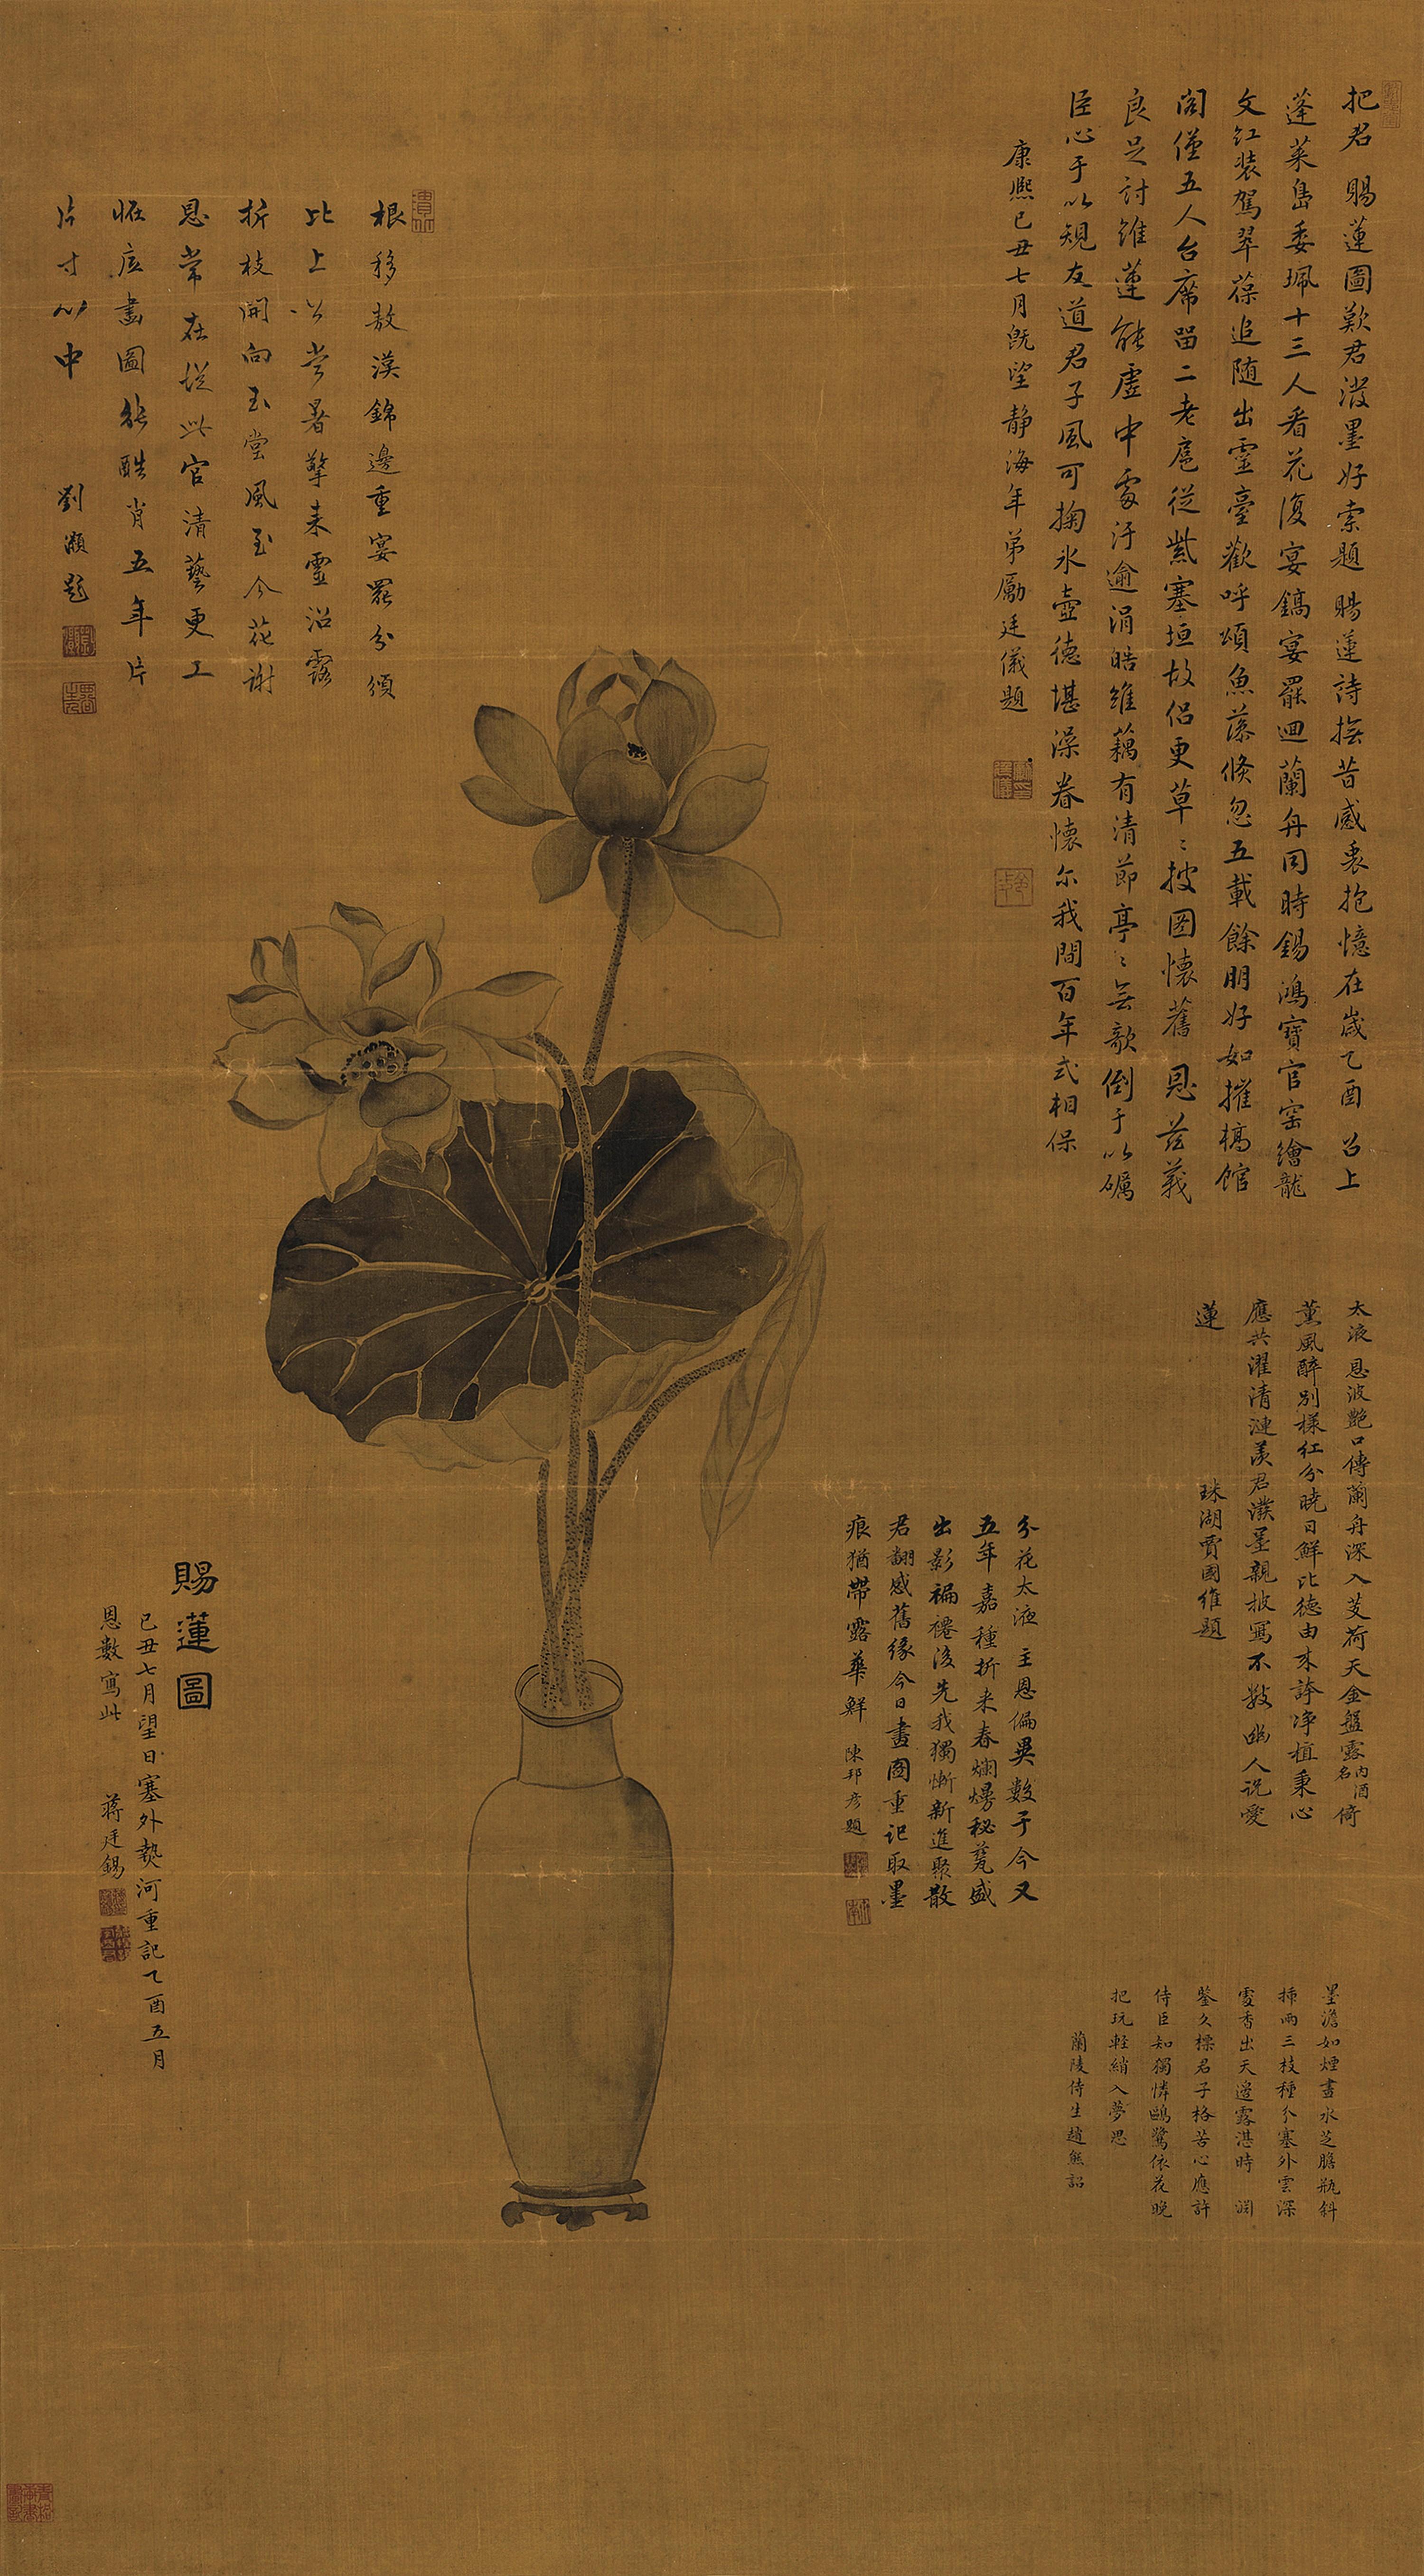 把君 賜蓮圖歎君潑墨好索題 賜蓮詩撫昔感衷抱憶在歲乙酉 召上
蓬萊島委珮十三人看花復宴鎬宴罷迴蘭舟同時錫鴻寶官窑繪龍
文紅裝駕翠葆追随出靈臺歡呼頌魚藻倐忽五載餘朋好如摧槁館
閣僅五人台席留二老扈從紫塞垣故侶更草〻披圖懷舊 恩茲義
良足討維蓮能虛中處汙逾涓皓維藕有清節亭〻無欹倒于以礪
臣心于以規友道君子風可掬氷壺德堪澡眷懷尔我間百年式相保
康熙己丑七月既望静海年弟勵廷儀題
太液 恩波艷口傳蘭舟深入芰荷天金盤露內酒名倚
薰風醉別樣紅分曉日鮮比德由來誇净植秉心
應共濯清漣羨君潑墨親披寫不數幽人說愛
蓮
珠湖賈國維題
分花太液 主恩偏異數于今又
五年嘉種折来春爛熳秘甆盛
出影褊褼後先我獨慚新進聚散
君翻感舊緣今日畫圖重記取墨
痕猶帶露華鮮 陳邦彦題
墨澹如煙畫水芝膽瓶斜
插兩三枝種分塞外雲深
處香出天邊露湛時 淵
鑒久標君子格苦心應許
侍臣知獨憐鷗鷺依花晚
把玩輕綃入夢思
蘭陵侍生趙熊詔
根移敖漢錦邊重宴罷分頒
比上公當暑擎来靈沼露
折枝開向玉堂風至今花謝
恩常在從此官清藝更工
恠底畫圖能酷肖五年片
片寸心中 劉灝題
賜蓮圖
己丑七月望日塞外熱河重記乙酉五月
恩數寫此 蔣廷錫